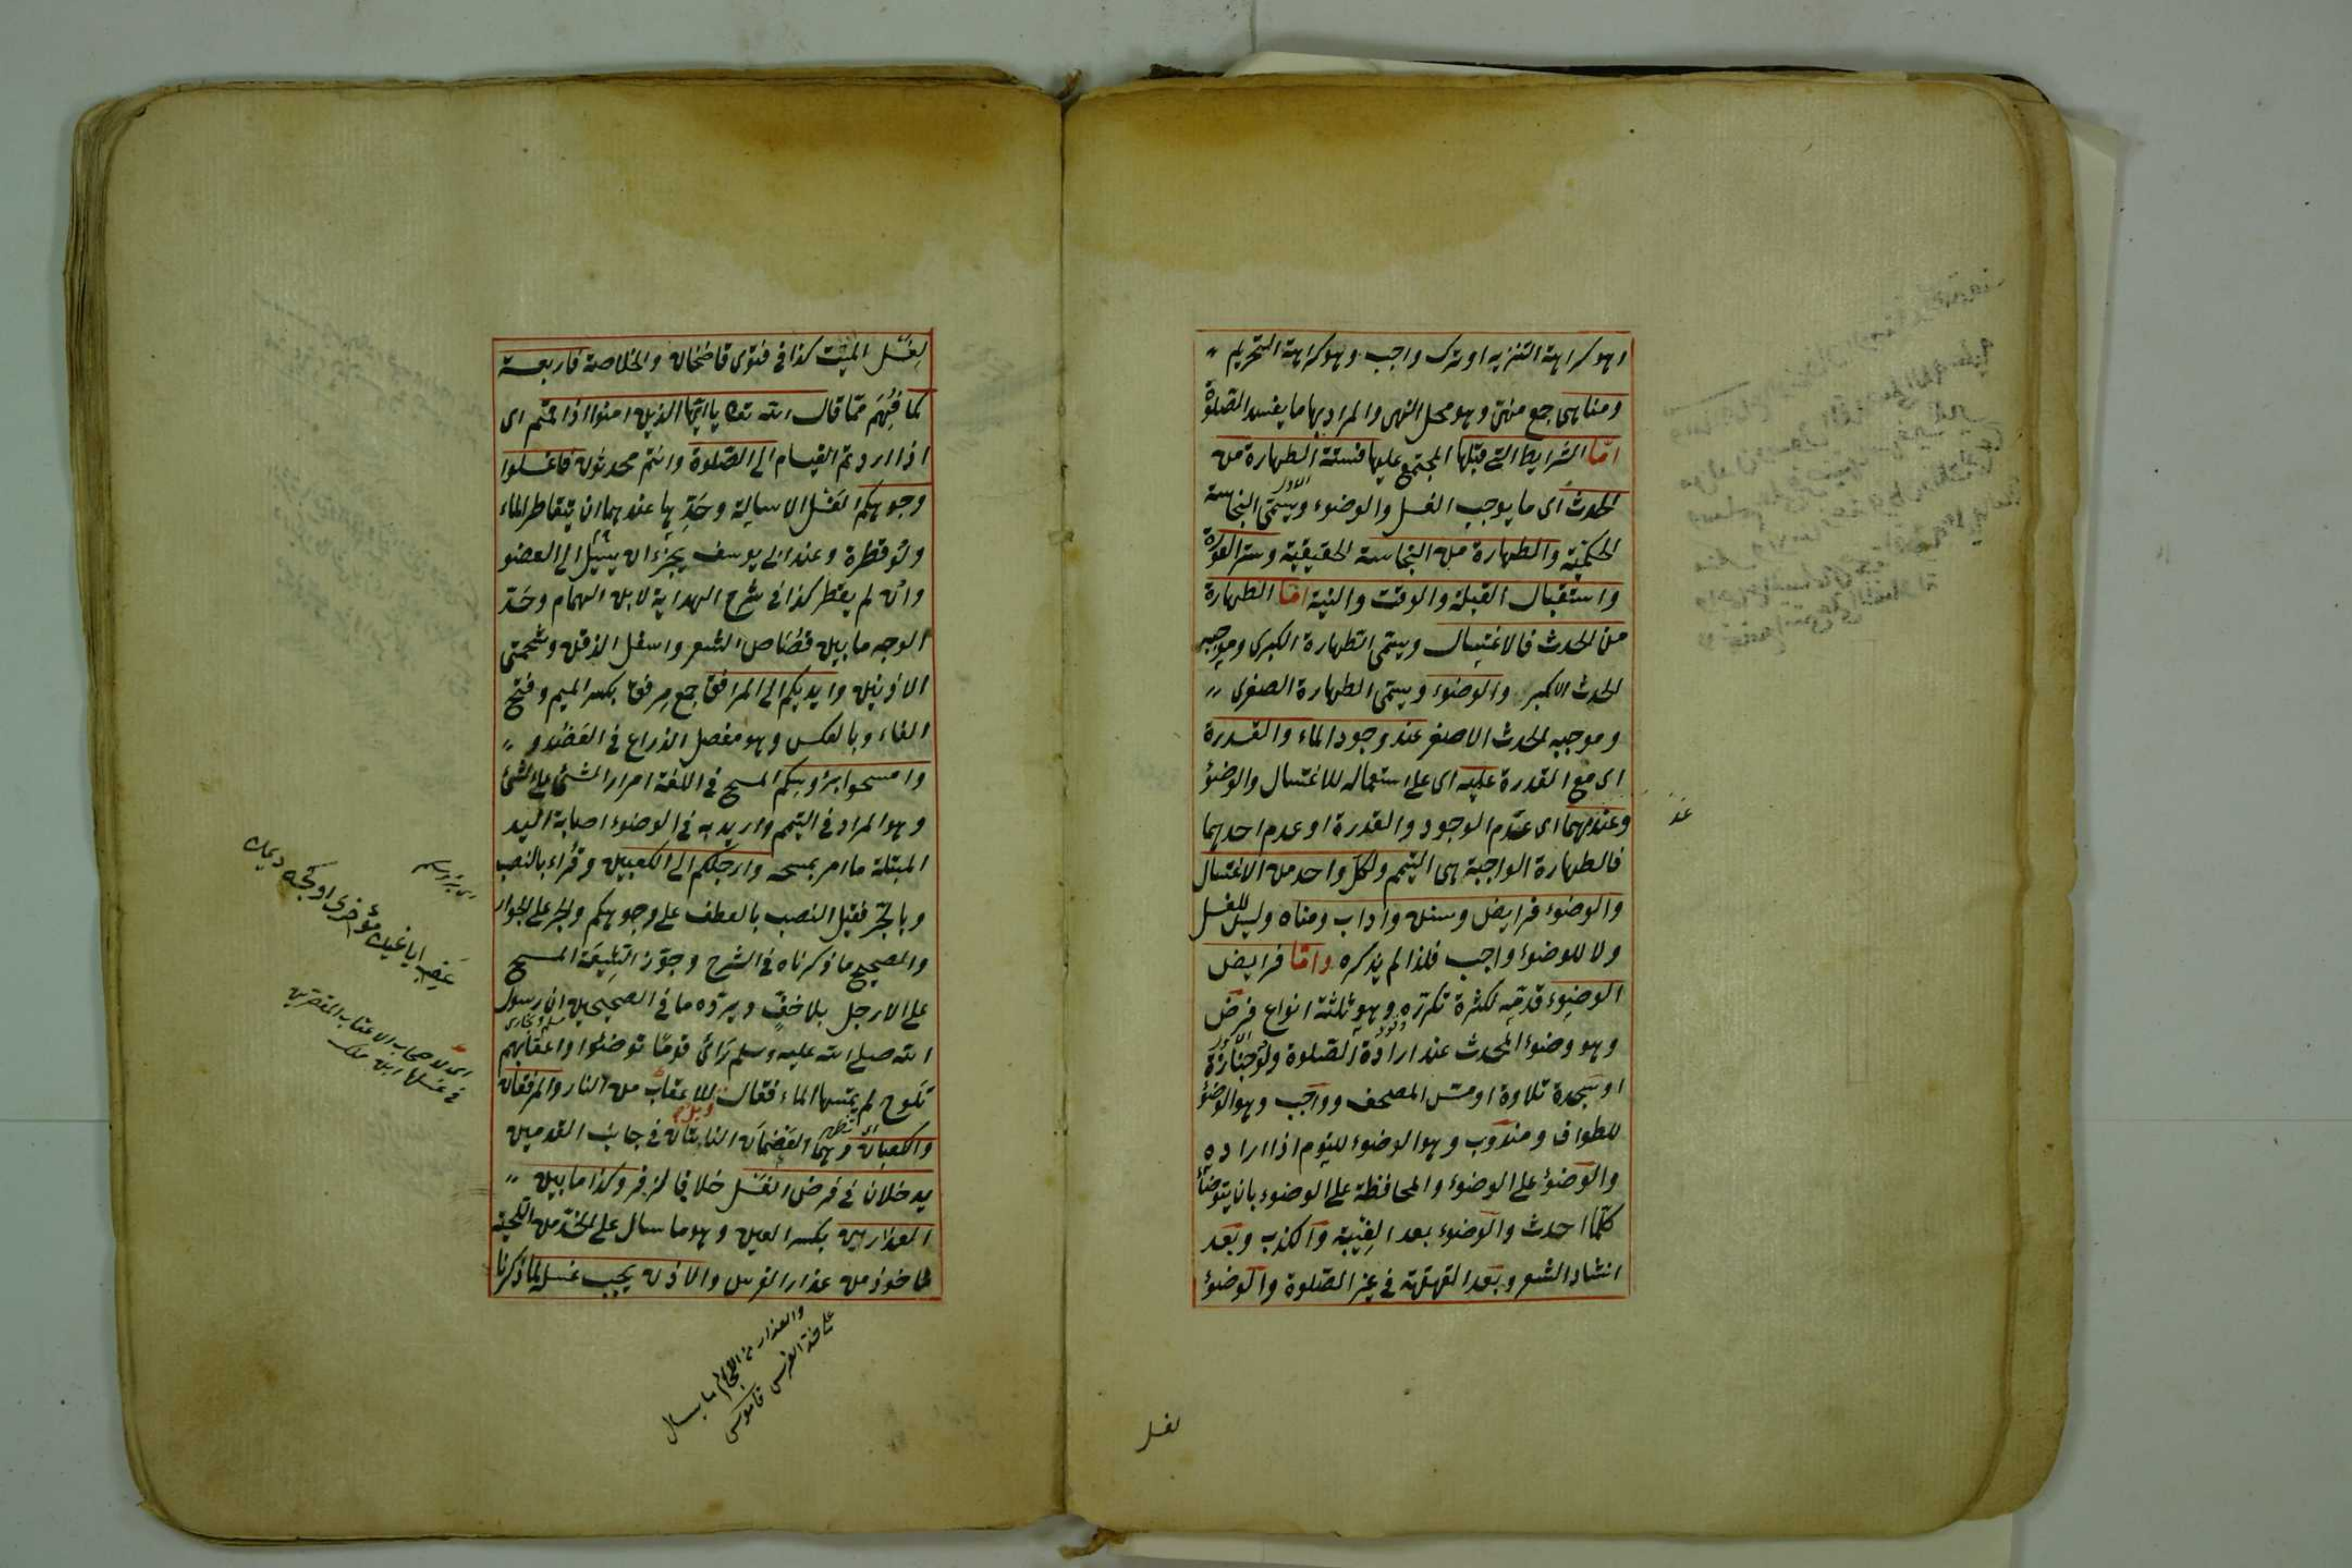 وهو كراهة التنزيه او ترك واجب وهو كراهة التحريم
ومناهى جمع منهى وهو محل النهى والمراد بها ما يفسد الصلوة
امّا الشرايط التى قبلها المجتمع عليها فستة الطهارة من
الحدث اى ما يوجب الغسل والوضوء ويسمّى النجاسة
الحكميّة والطهارة من النجاسة الحقيقية وستر العورة
واستقبال القبلة والوقت والنية امّا الطهارة
من الحدث فالاغتسال ويسمّى الطهارة الكبرى وموجبه
الحدث الاكبر والوضوء ويسمّى الطهارة الصغرى
وموجبه الحدث الاصغر عند وجود الماء والقدرة
اى مع القدرة عليه اى على استعماله للاغتسال والوضوء
وعندمهما اى عدم الوجود والقدرة او عدم احدهما
فالطهارة الواجبة هى التيمم ولكل واحد من الاغتسال
والوضوء فرايض وسنن واداب ومناه وليس للغسل
ولا للوضوء واجب فلذا لم يذكره وامّا فرايض
الوضوء قدمه لكثرة تكرره وهو ثلثة انواع فرض
وهو وضوء المحدث عند ارادة الصلوة ولو جنازة
او سجدة تلاوة او مسّ المصحف وواجب وهو الوضوء
للطواف ومندوب وهو الوضوء للنوم اذا اراده
والوضوء على الوضوء والمحافظة على الوضوء بان يتوضأ
كلّما احدث والوضوء بعد الغيبة والكذب وبعد
انشاد الشعر وبعد القهقهة فى غير الصلوة والوضوء
لغسل
لغسل الميت كذا فى فتوى قاضخان والخلاصة فاربعة
كما فهم ممّا قال الله تعا يا ايّها الذين امنوا اذا قمتم اى
اذا اردتم القيام الى الصلوة وانتم محدثون فاغسلوا
وجوهكم الغسل الاسالة وحدّها عندهما ان يتقاطر الماء
ولو قطرة وعند ابى يوسف يجزء ان يسيل الى العضو
وان لم يقطر كذا فى شرح الهداية لابن الهمام وحدّ
الوجه ما بين قصاص الشعر واسفل الذقن وشحمتى
الاذنين وايديكم الى المرافق جمع مرفق بكسر الميم وفتح
الفاء وبالعكس وهو مفصل الذراع فى العضد و
وامسحوا برؤسكم المسح فى اللغة امرار الشئ على الشئ
وهو المراد فى التيمم واريد به فى الوضوء اصابة اليد
المبتلة ما امر بمسحه وارجلكم الى الكعبين وقراء بالنصب
وبالجرّ فقيل النصب بالعطف على وجوهكم والجر على الجوار
والصحيح ما ذكرناه فى الشرح وجوّز الشيعة المسح
على الارجل بلا خفّ ويردّه ما فى الصحيحين ان رسول
مسلم وبخارى
الله صلى الله عليه وسلم رأى قومًا توضئوا واعقابهم
تلوح لم يمسّها الماء فقال للاعقاب من النار والمرفقان
ويل
والكعبان وهما العظمان الناتئان فى جانب القدمين
يدخلان فى فرض الغسل خلافا لزفر وكذا ما بين
العذارين بكسر العين وهو ما سال على الخدّ من اللحية
مأخوذ من عذار الفرس والاذن يجب غسله لما ذكرنا
اى لاصحاب الاعقاب المقصرين
فى غسلها ابن ملك
والعذار من اللجام ما سال
على خد الفرس قاموس